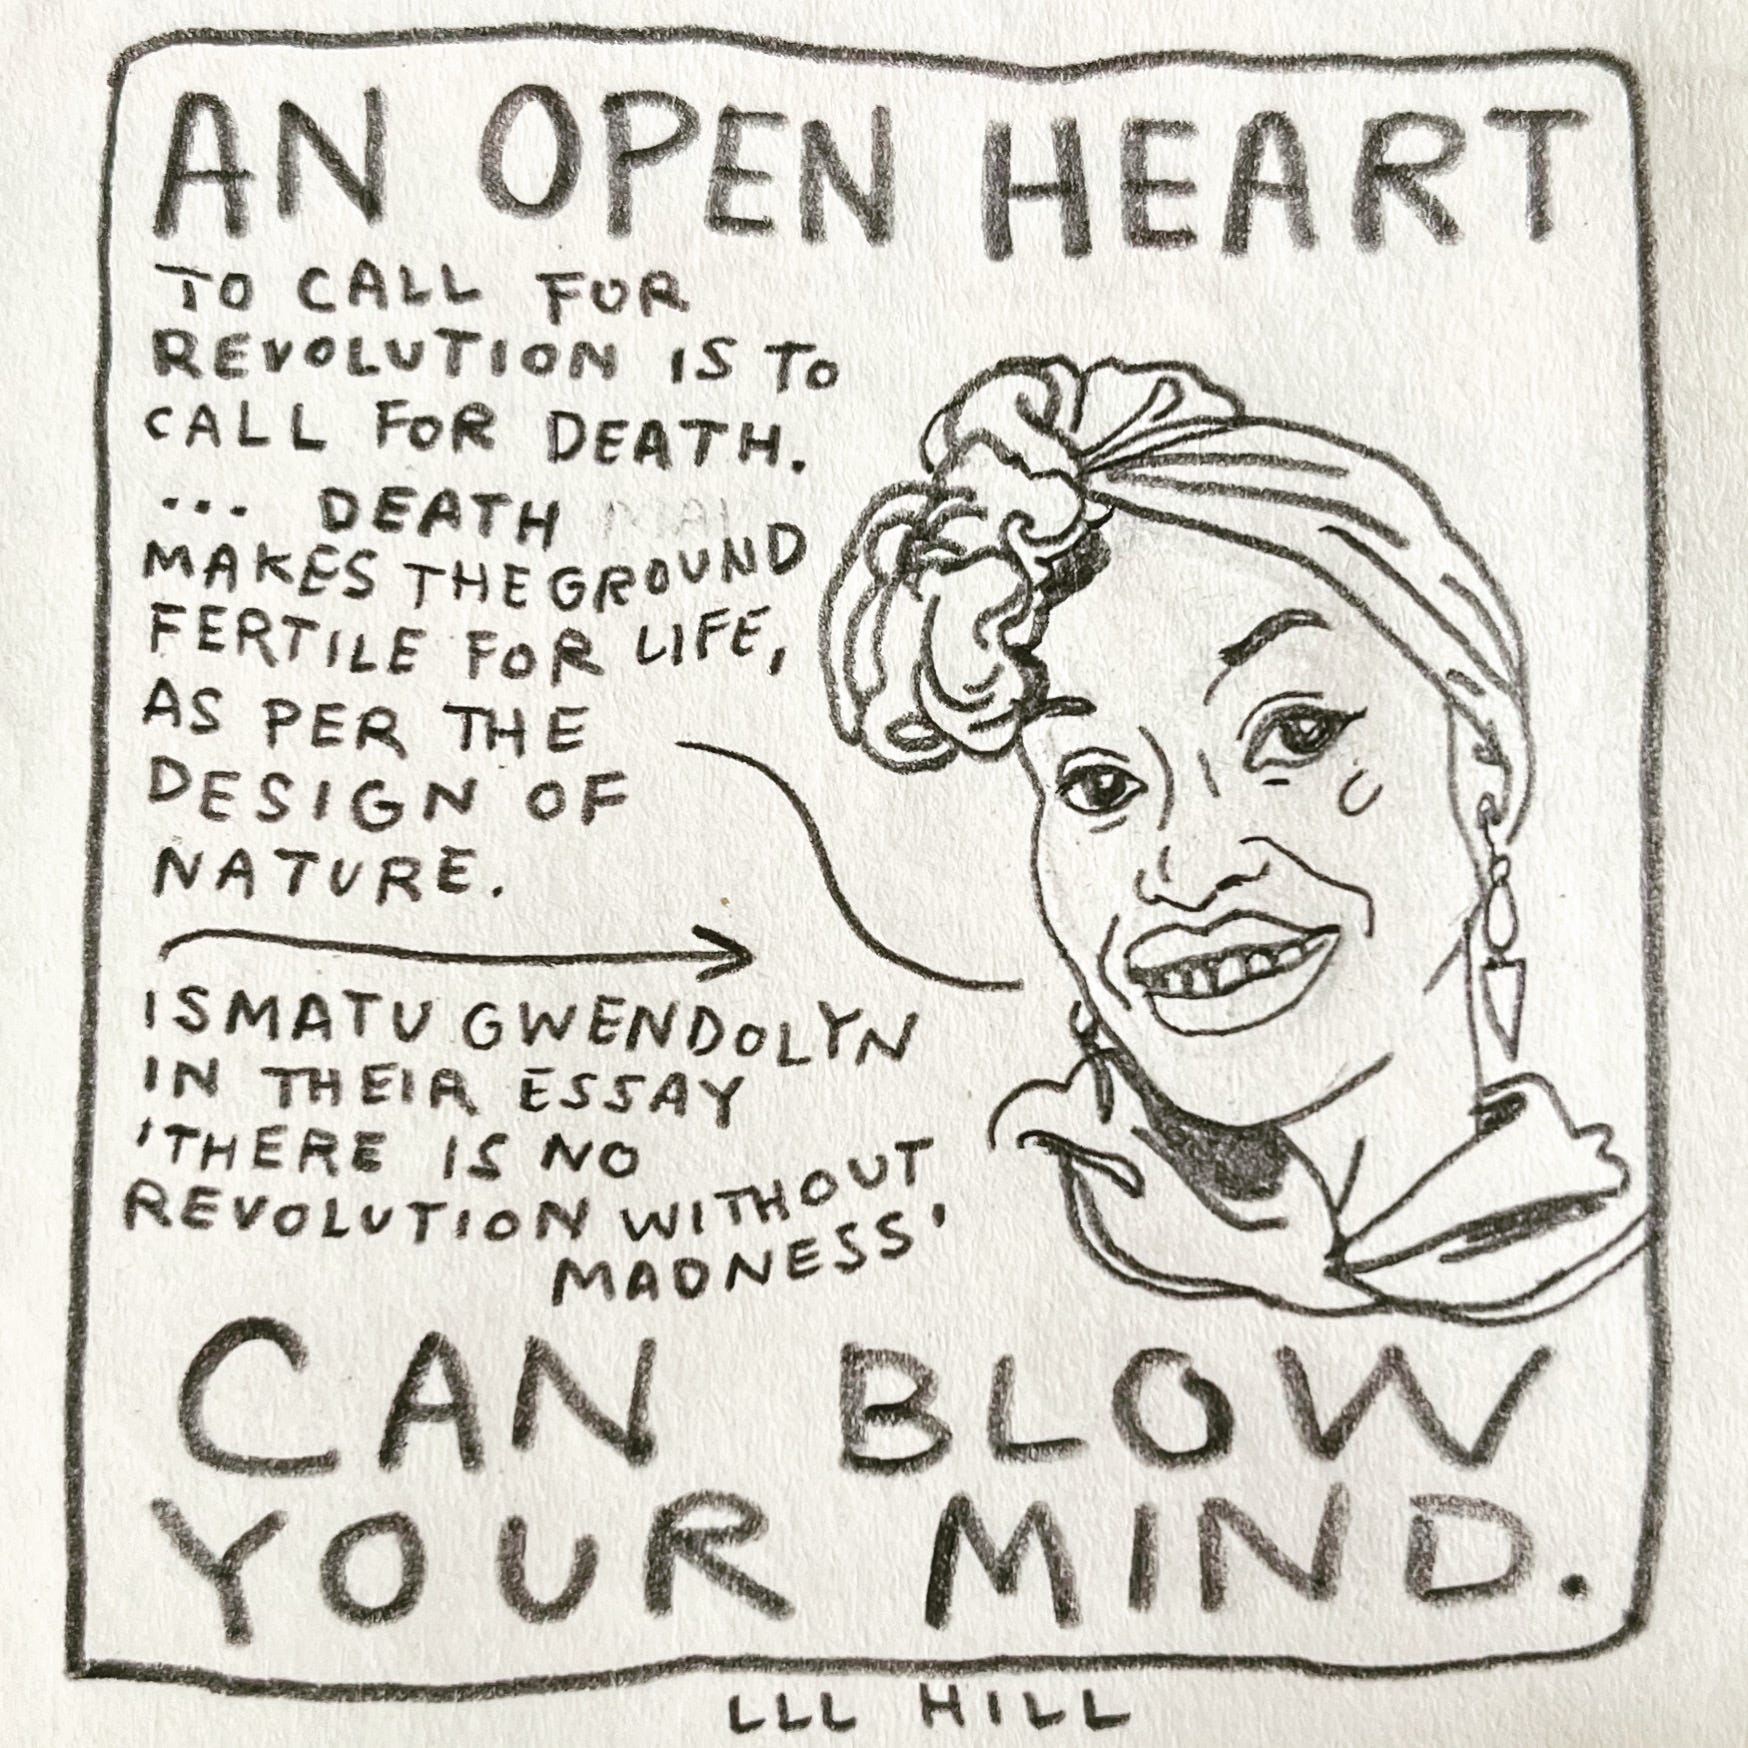 AN OPEN HEART
TO CALL FOR
REVOLUTION IS TO
CALL FOR DEATH.
... DEATH
MAKES THE GROUND
FERTILE FOR LIFE,
AS PER THE
DESIGN OF
NATURE.
ISMATU GWENDOLYN
IN THEIR ESSAY
'THERE IS NO
REVOLUTION WITHOUT
MADNESS'
CAN BLOW
YOUR MIND.
LLL HILL